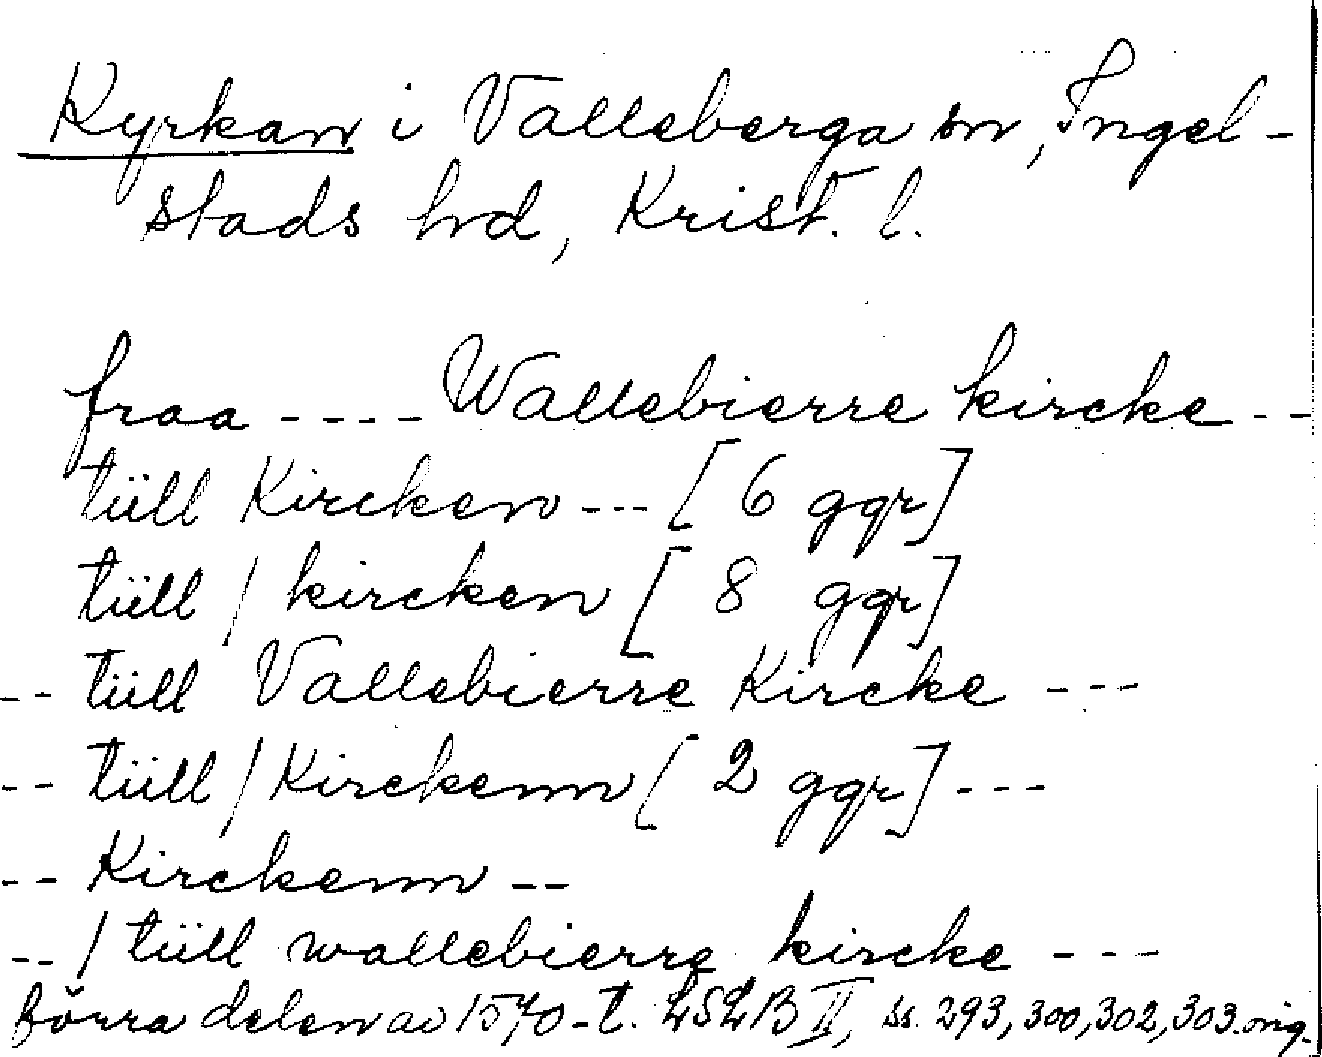 Kyrkan i Valleberga sn, Ingel-
stads hrd, Krist. l.
fraa ---- Wallebierre kircke --
tüll Kircken --- [6 ggr]
tüll / kircken [8 ggr]
-- tüll Vallebierre Kircke ---
-- tüll / Kirckenn [2 ggr] ---
-- Kirckenn --
-- / tüll wallebierre kircke ---
förra delen av 1570-t. LSLB II, ss. 293, 300, 302, 303. orig.